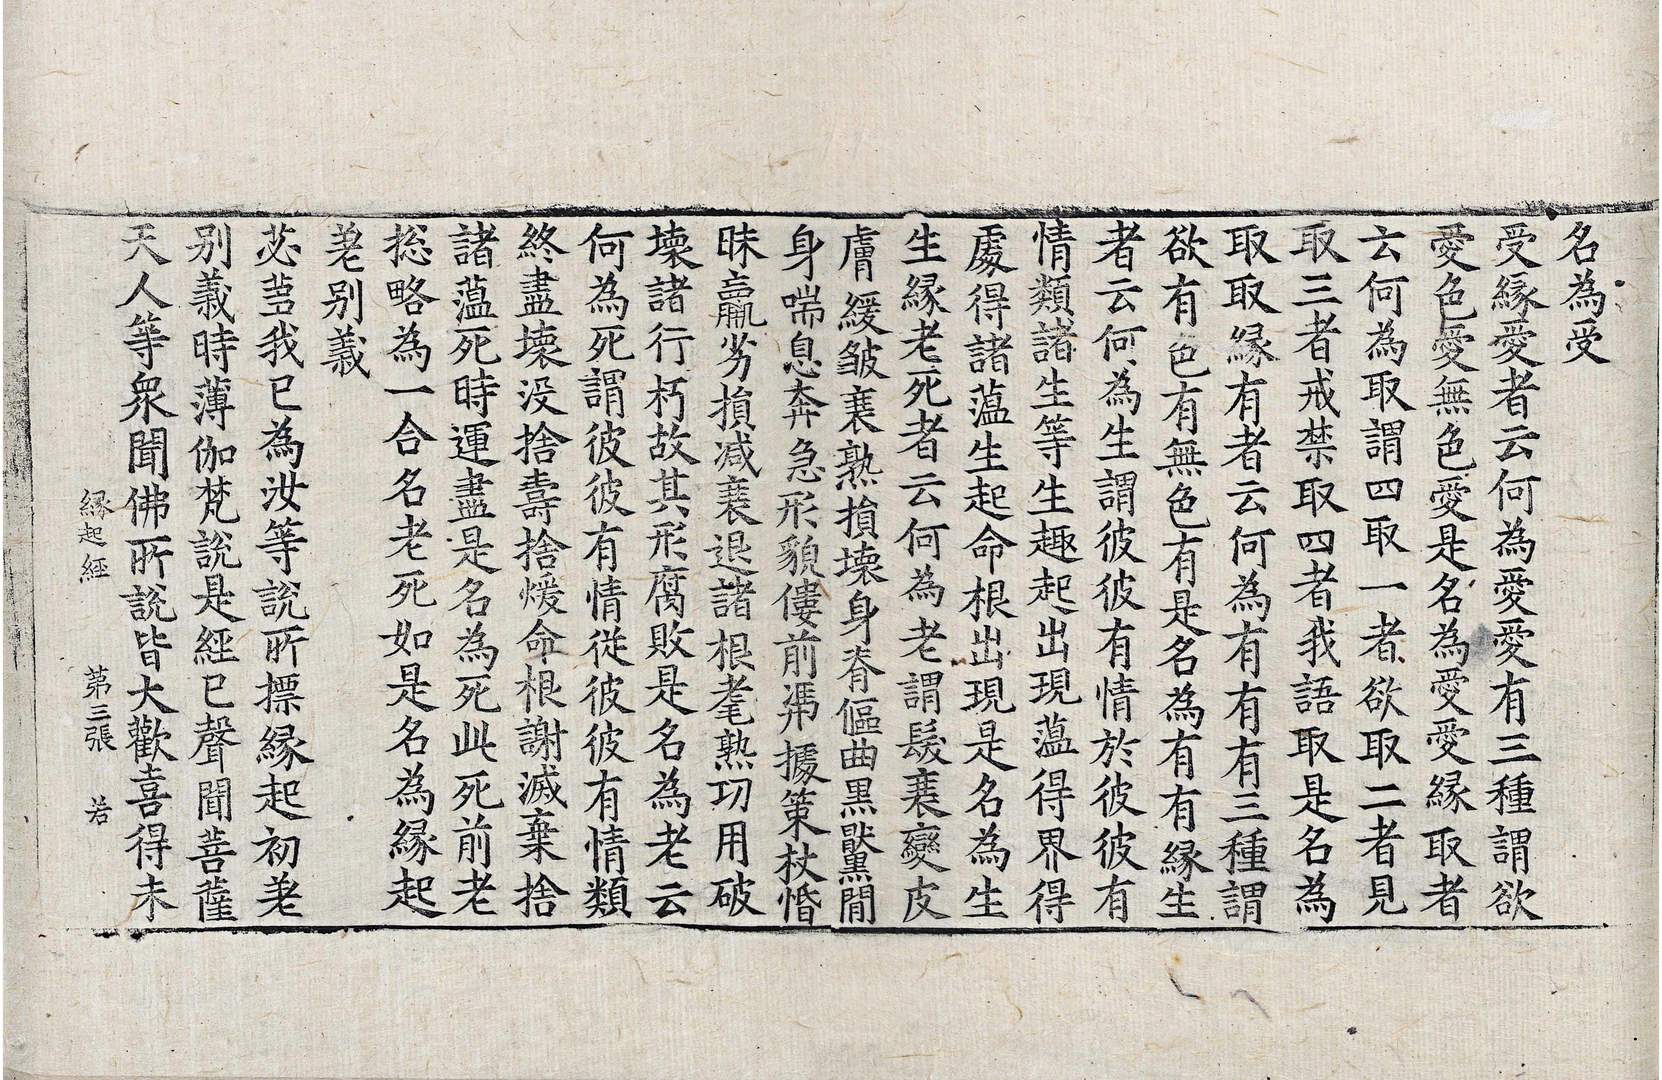 名為受
受縁愛者云何為愛愛有三種謂欲
愛色愛無色愛是名為愛愛縁取者
云何為取謂四取一者欲取二者見
取三者戒禁取四者我語取是名為
取取縁有者云何為有有有三種謂
欲有色有無色有是名為有有縁生
者云何為生謂彼彼有情於彼彼有
情類諸生等生趣起出現蘊得界得
處得諸蘊生起命根出現是名為生
生縁老死者云何為老謂髮衰變皮
膚緩皺衰熟損壊身脊傴曲黒黶間
身喘息奔急形貌僂前馮據策杖惛
昧羸劣損减衰退諸根耄熟功用破
壊諸行朽故其形腐敗是名為老云
何為死謂彼彼有情従彼彼有情類
終盡壊没捨壽捨煖命根謝滅棄捨
諸蘊死時運盡是名為死此死前老
惣略為一合名老死如是名為縁起
差别義
苾芻我已為汝等說所摽縁起初差
别義時薄伽梵說是經已聲聞菩薩
天人等衆聞佛所說皆大歡喜得未
縁起經　第三張　若